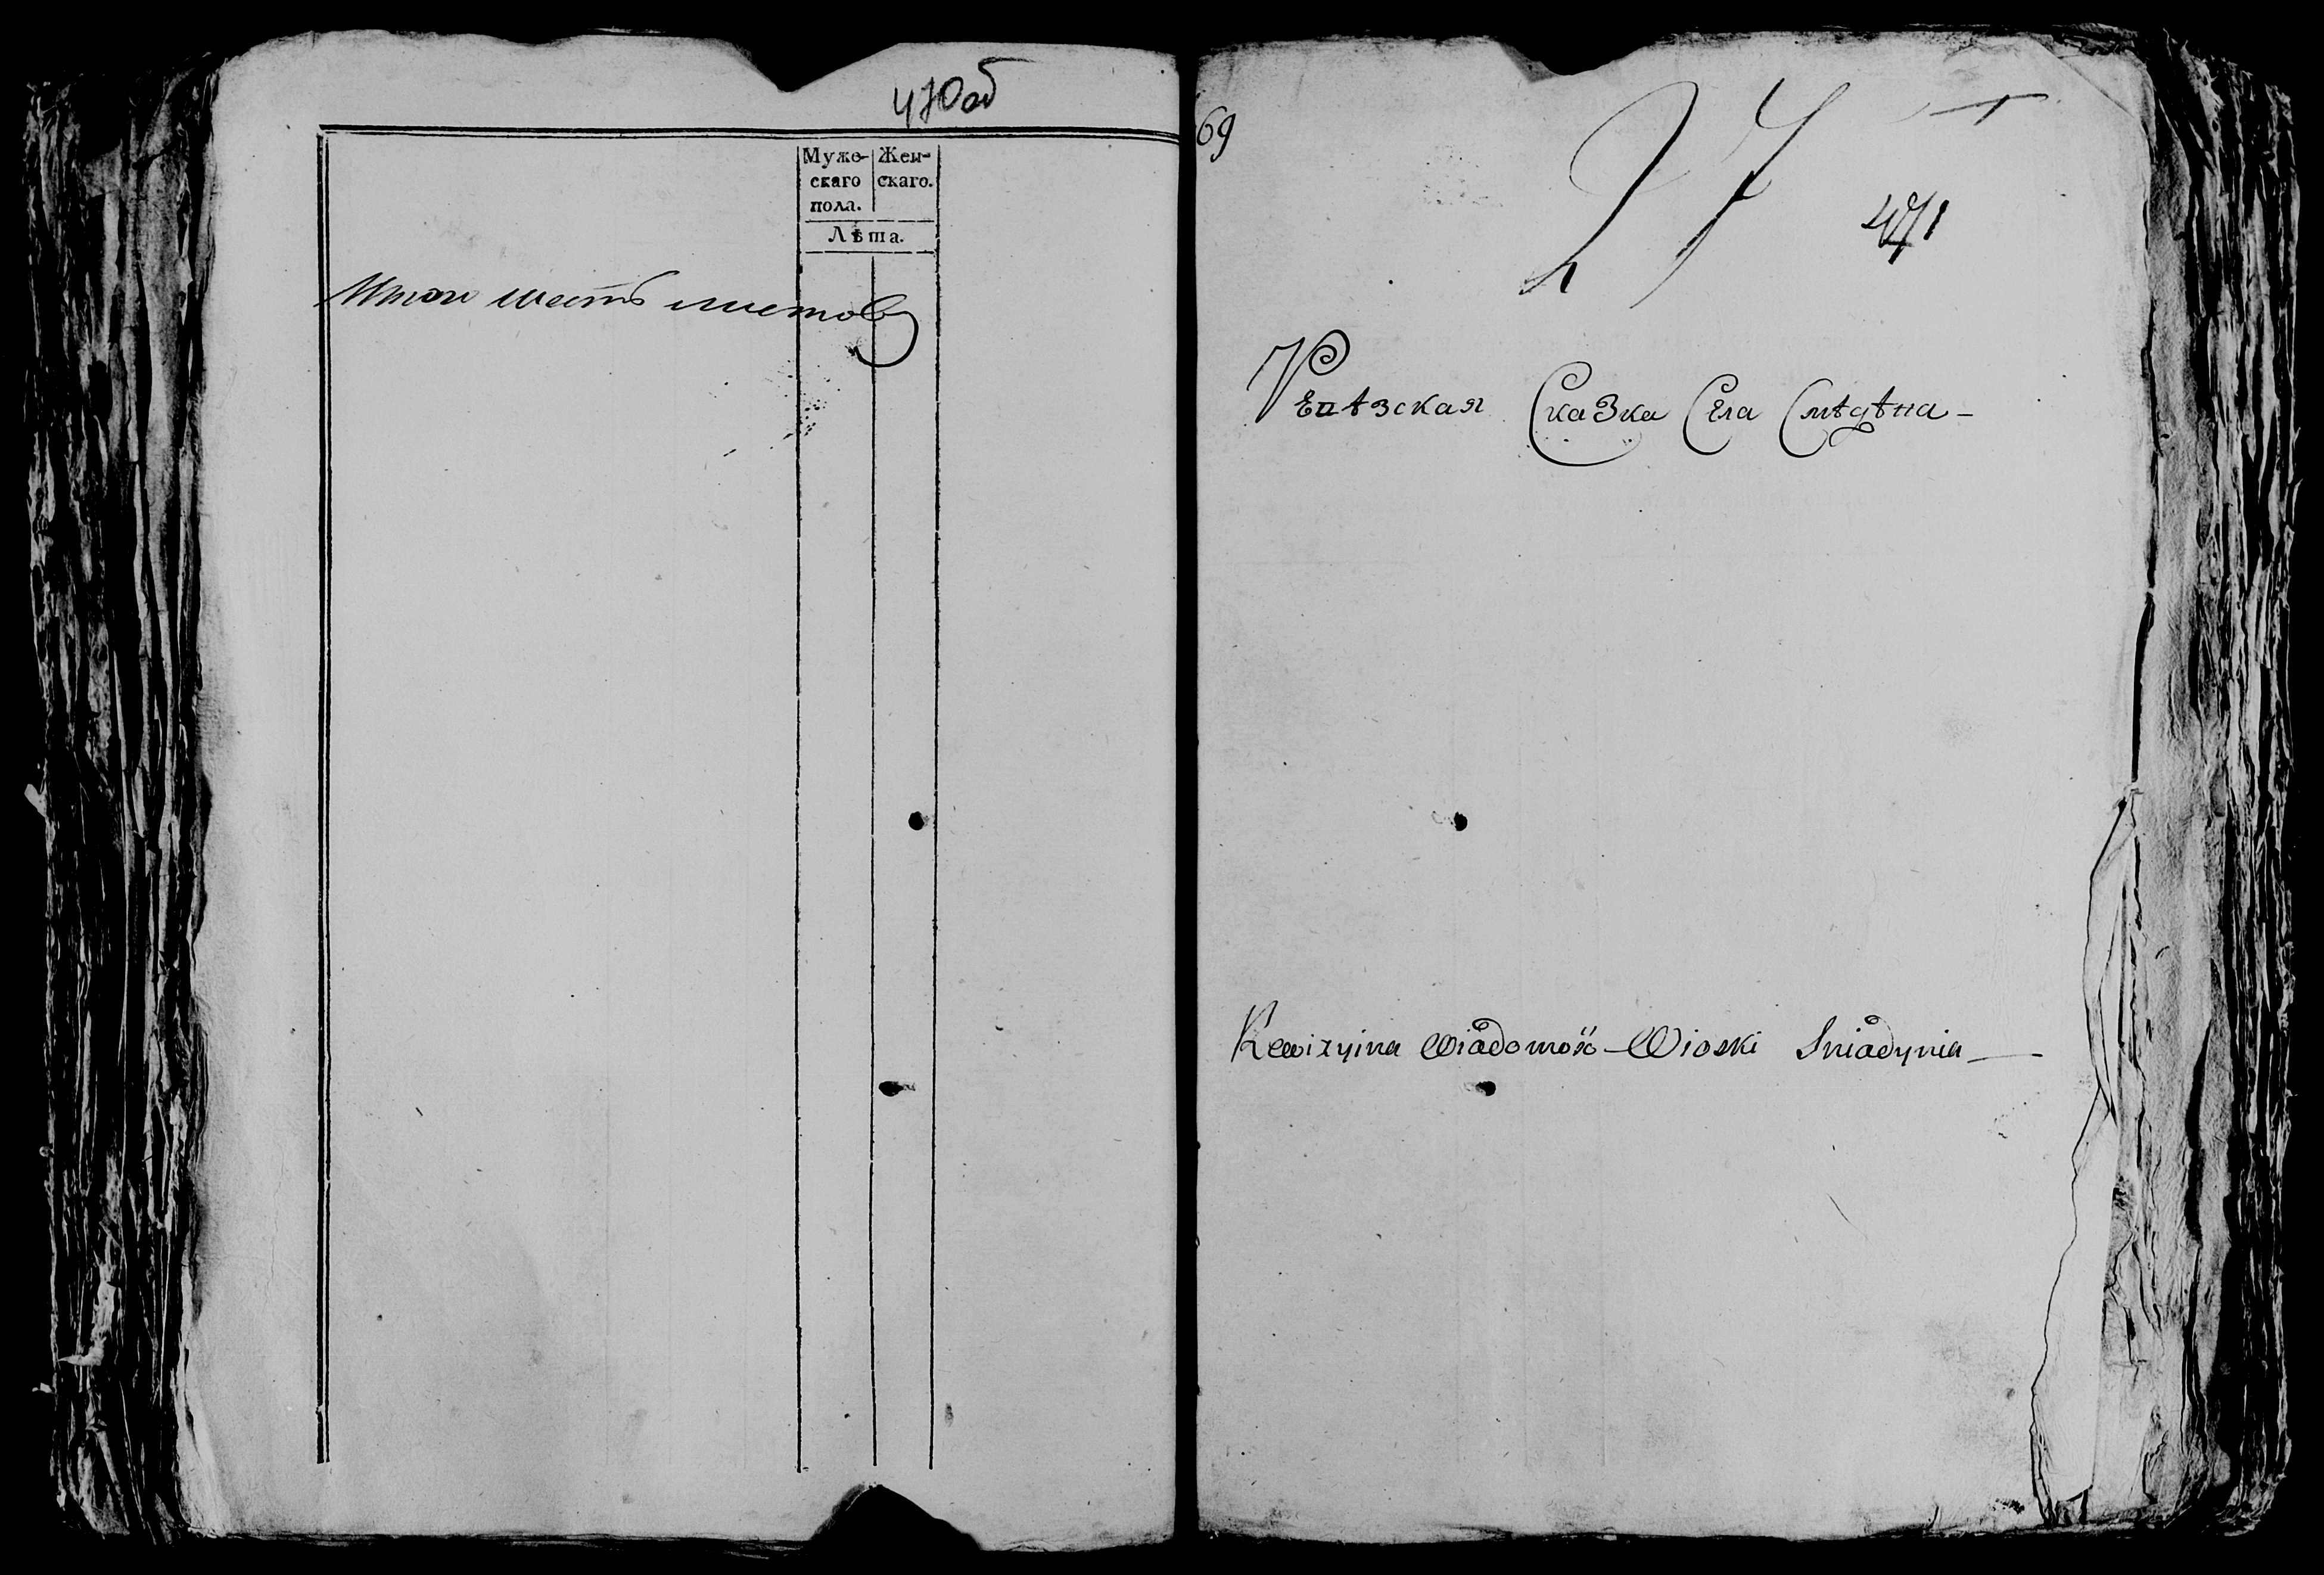 470об
Муже-
скаго
пола.
Жен-
скаго.
Лѣта.
Итого шесть листов
69
27
471
Сказка Села
Rewizyina Wiadomość Wioski Sniadynia